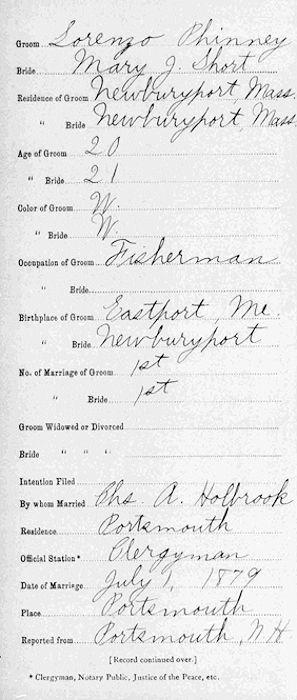 Groom Lorenzo Phinney
Bride Mary J. Short
Residence of Groom Newburyport, Mass.
" Bride Newburyport, Mass
Age of Groom 20
" Bride 21
Color of Groom W.
" Bride W.
Occupation of Groom Fisherman
" Bride
Birthplace of Groom Eastport, Me.
" Bride Newburyport
No. of Marriage of Groom 1st
" Bride 1st
Groom Widowed or Divorced
Bride " " "
Intention Filed
By whom Married Chs. A. Holbrook
Residence Portsmouth
Official Station* Clergyman
Date of Marriage July 1, 1879
Place Portsmouth
Reported from Portsmouth, N H
[Record continued over.]
* Clergyman, Notary Public, Justice of the Peace, etc.